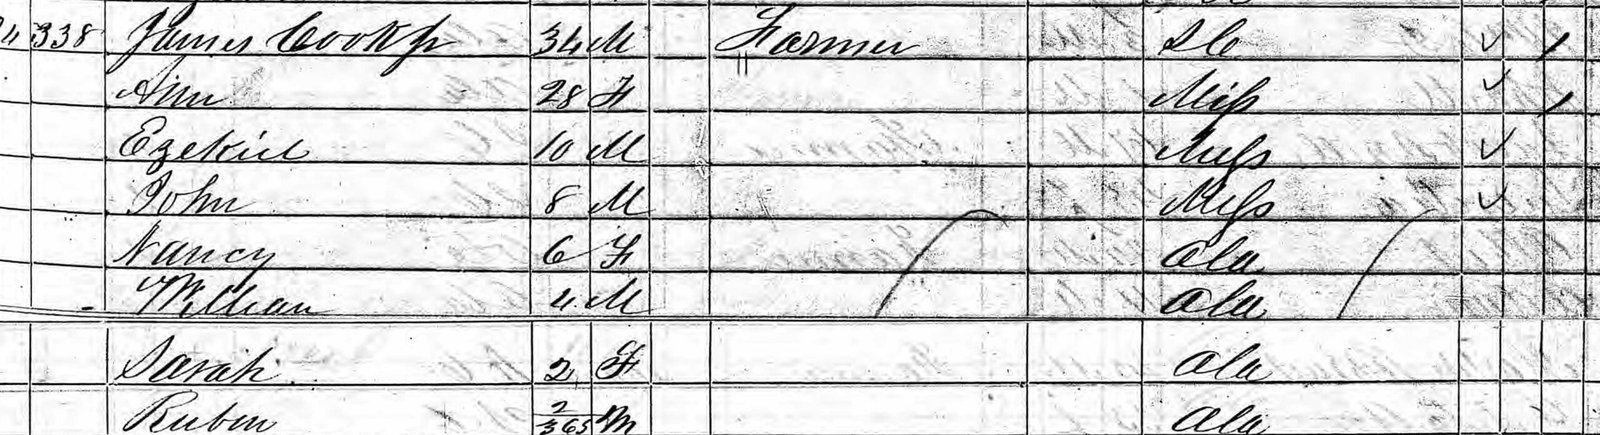 4 338 James Cook Jr 34 M Farmer SC ✓ /
Ann 28 F Miss ✓ /
Ezekiel 10 M Miss ✓
John 8 M Miss ✓
Nancy 6 F Ala
William 4 M Ala
Sarah 2 F Ala
Ruben 2/365 M Ala